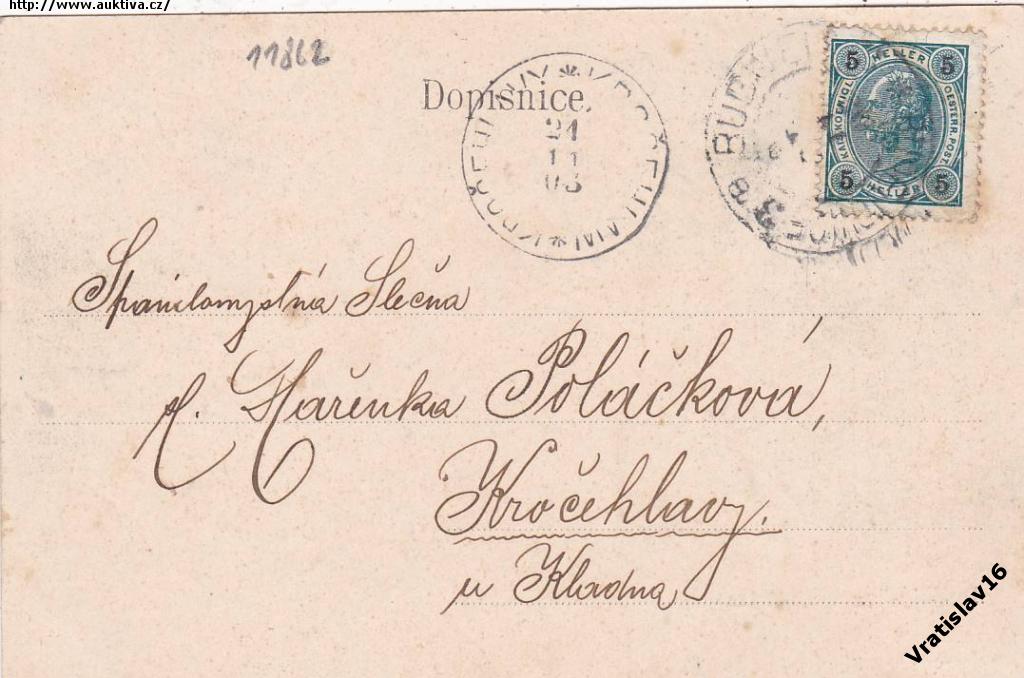 http://www.auktiva.cz/
11862
Dopisnice.
21
11
03
5 HELLER 5
KAIS. KOENIGL. OESTERR. POST.
5 HELLER 5
Spanilomyslná Slečna
Mařenka Poláčková,
Kročehlavy.
u Kladna
Vratislav16